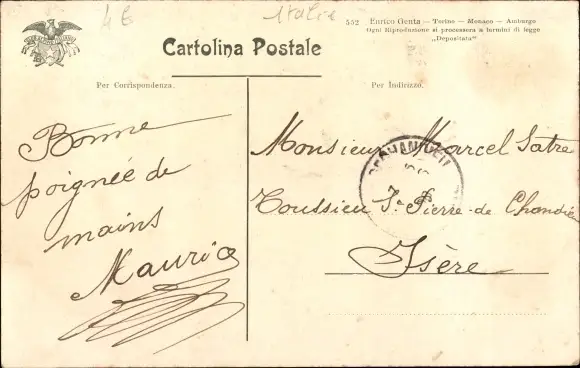 4€
Italie
552 Enrico Genta — Torino — Monaco — Amburgo
Ogni Riproduzione si processera a termini di legge
„Depositata"
Cartolina Postale
Per Corrispondenza.
Per Indirizzo.
Bonne
poignée de
mains
Maurice
Monsieur Marcel Satre
Toussieu St Pierre-de Chandieu
Isère